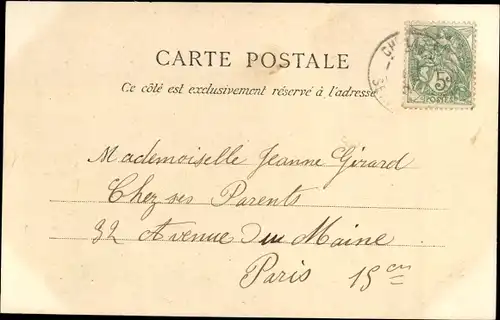 CARTE POSTALE
Ce côté est exclusivement réservé à l'adresse
5c
POSTES
Mademoiselle Jeanne Girard
Chez ses Parents
32 Avenue Du Maine
Paris 15em